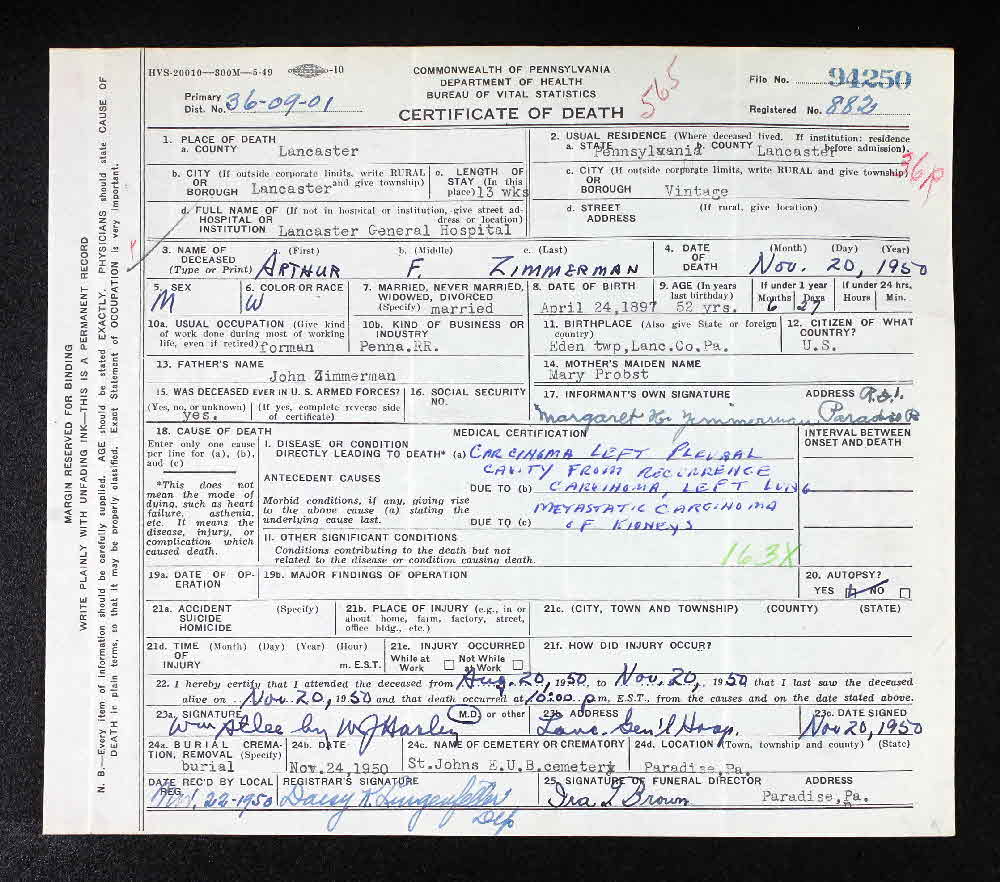 HVS-20010—300M—5-49 -10
COMMONWEALTH OF PENNSYLVANIA
DEPARTMENT OF HEALTH
BUREAU OF VITAL STATISTICS
CERTIFICATE OF DEATH
565
File No. 94250
Primary Dist. No. 36-09-01
Registered No. 882
1. PLACE OF DEATH
a. COUNTY Lancaster
2. USUAL RESIDENCE (Where deceased lived. If institution: residence before admission).
a. STATE Pennsylvania b. COUNTY Lancaster
36p
b. CITY (If outside corporate limits, write RURAL and give township) OR BOROUGH Lancaster
c. LENGTH OF STAY (In this place) 13 wks
c. CITY (If outside corporate limits, write RURAL and give township) OR BOROUGH Vintage
d. FULL NAME OF (If not in hospital or institution, give street address or location) HOSPITAL OR INSTITUTION Lancaster General Hospital
d. STREET ADDRESS (If rural, give location)
3. NAME OF DECEASED (Type or Print) a. (First) b. (Middle) c. (Last)
ARTHUR F. ZIMMERMAN
4. DATE OF DEATH (Month) (Day) (Year)
Nov. 20, 1950
5. SEX M
6. COLOR OR RACE W
7. MARRIED, NEVER MARRIED, WIDOWED, DIVORCED (Specify) married
8. DATE OF BIRTH April 24,1897
9. AGE (In years last birthday) 52 yrs.
If under 1 year Months Days 6 27
If under 24 hrs. Hours Min.
10a. USUAL OCCUPATION (Give kind of work done during most of working life, even if retired) forman
10b. KIND OF BUSINESS OR INDUSTRY Penna.RR.
11. BIRTHPLACE (Also give State or foreign country) Eden twp,Lanc.Co.Pa.
12. CITIZEN OF WHAT COUNTRY? U.S.
13. FATHER'S NAME
John Zimmerman
14. MOTHER'S MAIDEN NAME
Mary Probst
15. WAS DECEASED EVER IN U. S. ARMED FORCES?
(Yes, no, or unknown) (If yes, complete reverse side of certificate)
yes.
16. SOCIAL SECURITY NO.
17. INFORMANT'S OWN SIGNATURE ADDRESS R.D.1.
Margaret H. Zimmerman Paradise Pa
18. CAUSE OF DEATH
Enter only one cause per line for (a), (b), and (c)
*This does not mean the mode of dying, such as heart failure, asthenia, etc. It means the disease, injury, or complication which caused death.
MEDICAL CERTIFICATION
INTERVAL BETWEEN ONSET AND DEATH
I. DISEASE OR CONDITION DIRECTLY LEADING TO DEATH* (a) CARCINOMA LEFT PLEURAL
CAVITY FROM RECURRENCE
ANTECEDENT CAUSES
DUE TO (b) CARCINOMA, LEFT LUNG
Morbid conditions, if any, giving rise to the above cause (a) stating the underlying cause last.
METASTATIC CARCINOMA
DUE TO (c) OF KIDNEYS
II. OTHER SIGNIFICANT CONDITIONS
Conditions contributing to the death but not related to the disease or condition causing death.
163X
19a. DATE OF OPERATION
19b. MAJOR FINDINGS OF OPERATION
20. AUTOPSY?
YES NO
21a. ACCIDENT SUICIDE HOMICIDE (Specify)
21b. PLACE OF INJURY (e.g., in or about home, farm, factory, street, office bldg., etc.)
21c. (CITY, TOWN AND TOWNSHIP) (COUNTY) (STATE)
21d. TIME OF INJURY (Month) (Day) (Year) (Hour) m. E.S.T.
21e. INJURY OCCURRED
While at Work Not While at Work
21f. HOW DID INJURY OCCUR?
22. I hereby certify that I attended the deceased from Aug. 20, 1950, to Nov. 20, 1950 that I last saw the deceased
alive on Nov. 20, 1950 and that death occurred at 10:00 pm, E.S.T., from the causes and on the date stated above.
23a. SIGNATURE (M.D. or other
Wm Atlee by W J Harley
23b. ADDRESS
Lanc. Gen'l Hosp.
23c. DATE SIGNED
Nov 20, 1950
24a. BURIAL CREMATION, REMOVAL (Specify)
burial
24b. DATE
Nov.24,1950
24c. NAME OF CEMETERY OR CREMATORY
St.Johns E.U.B.cemetery
24d. LOCATION (Town, township and county) (State)
Paradise,Pa.
DATE REC'D BY LOCAL REG.
Nov. 22-1950
REGISTRAR'S SIGNATURE
Daisy K. Lingenfelter
Dep
25. SIGNATURE OF FUNERAL DIRECTOR ADDRESS
Ira L Brown Paradise,Pa.
MARGIN RESERVED FOR BINDING
WRITE PLAINLY WITH UNFADING INK—THIS IS A PERMANENT RECORD
N. B.—Every item of information should be carefully supplied. AGE should be stated EXACTLY. PHYSICIANS should state CAUSE OF
DEATH in plain terms, so that it may be properly classified. Exact Statement of OCCUPATION is very important.